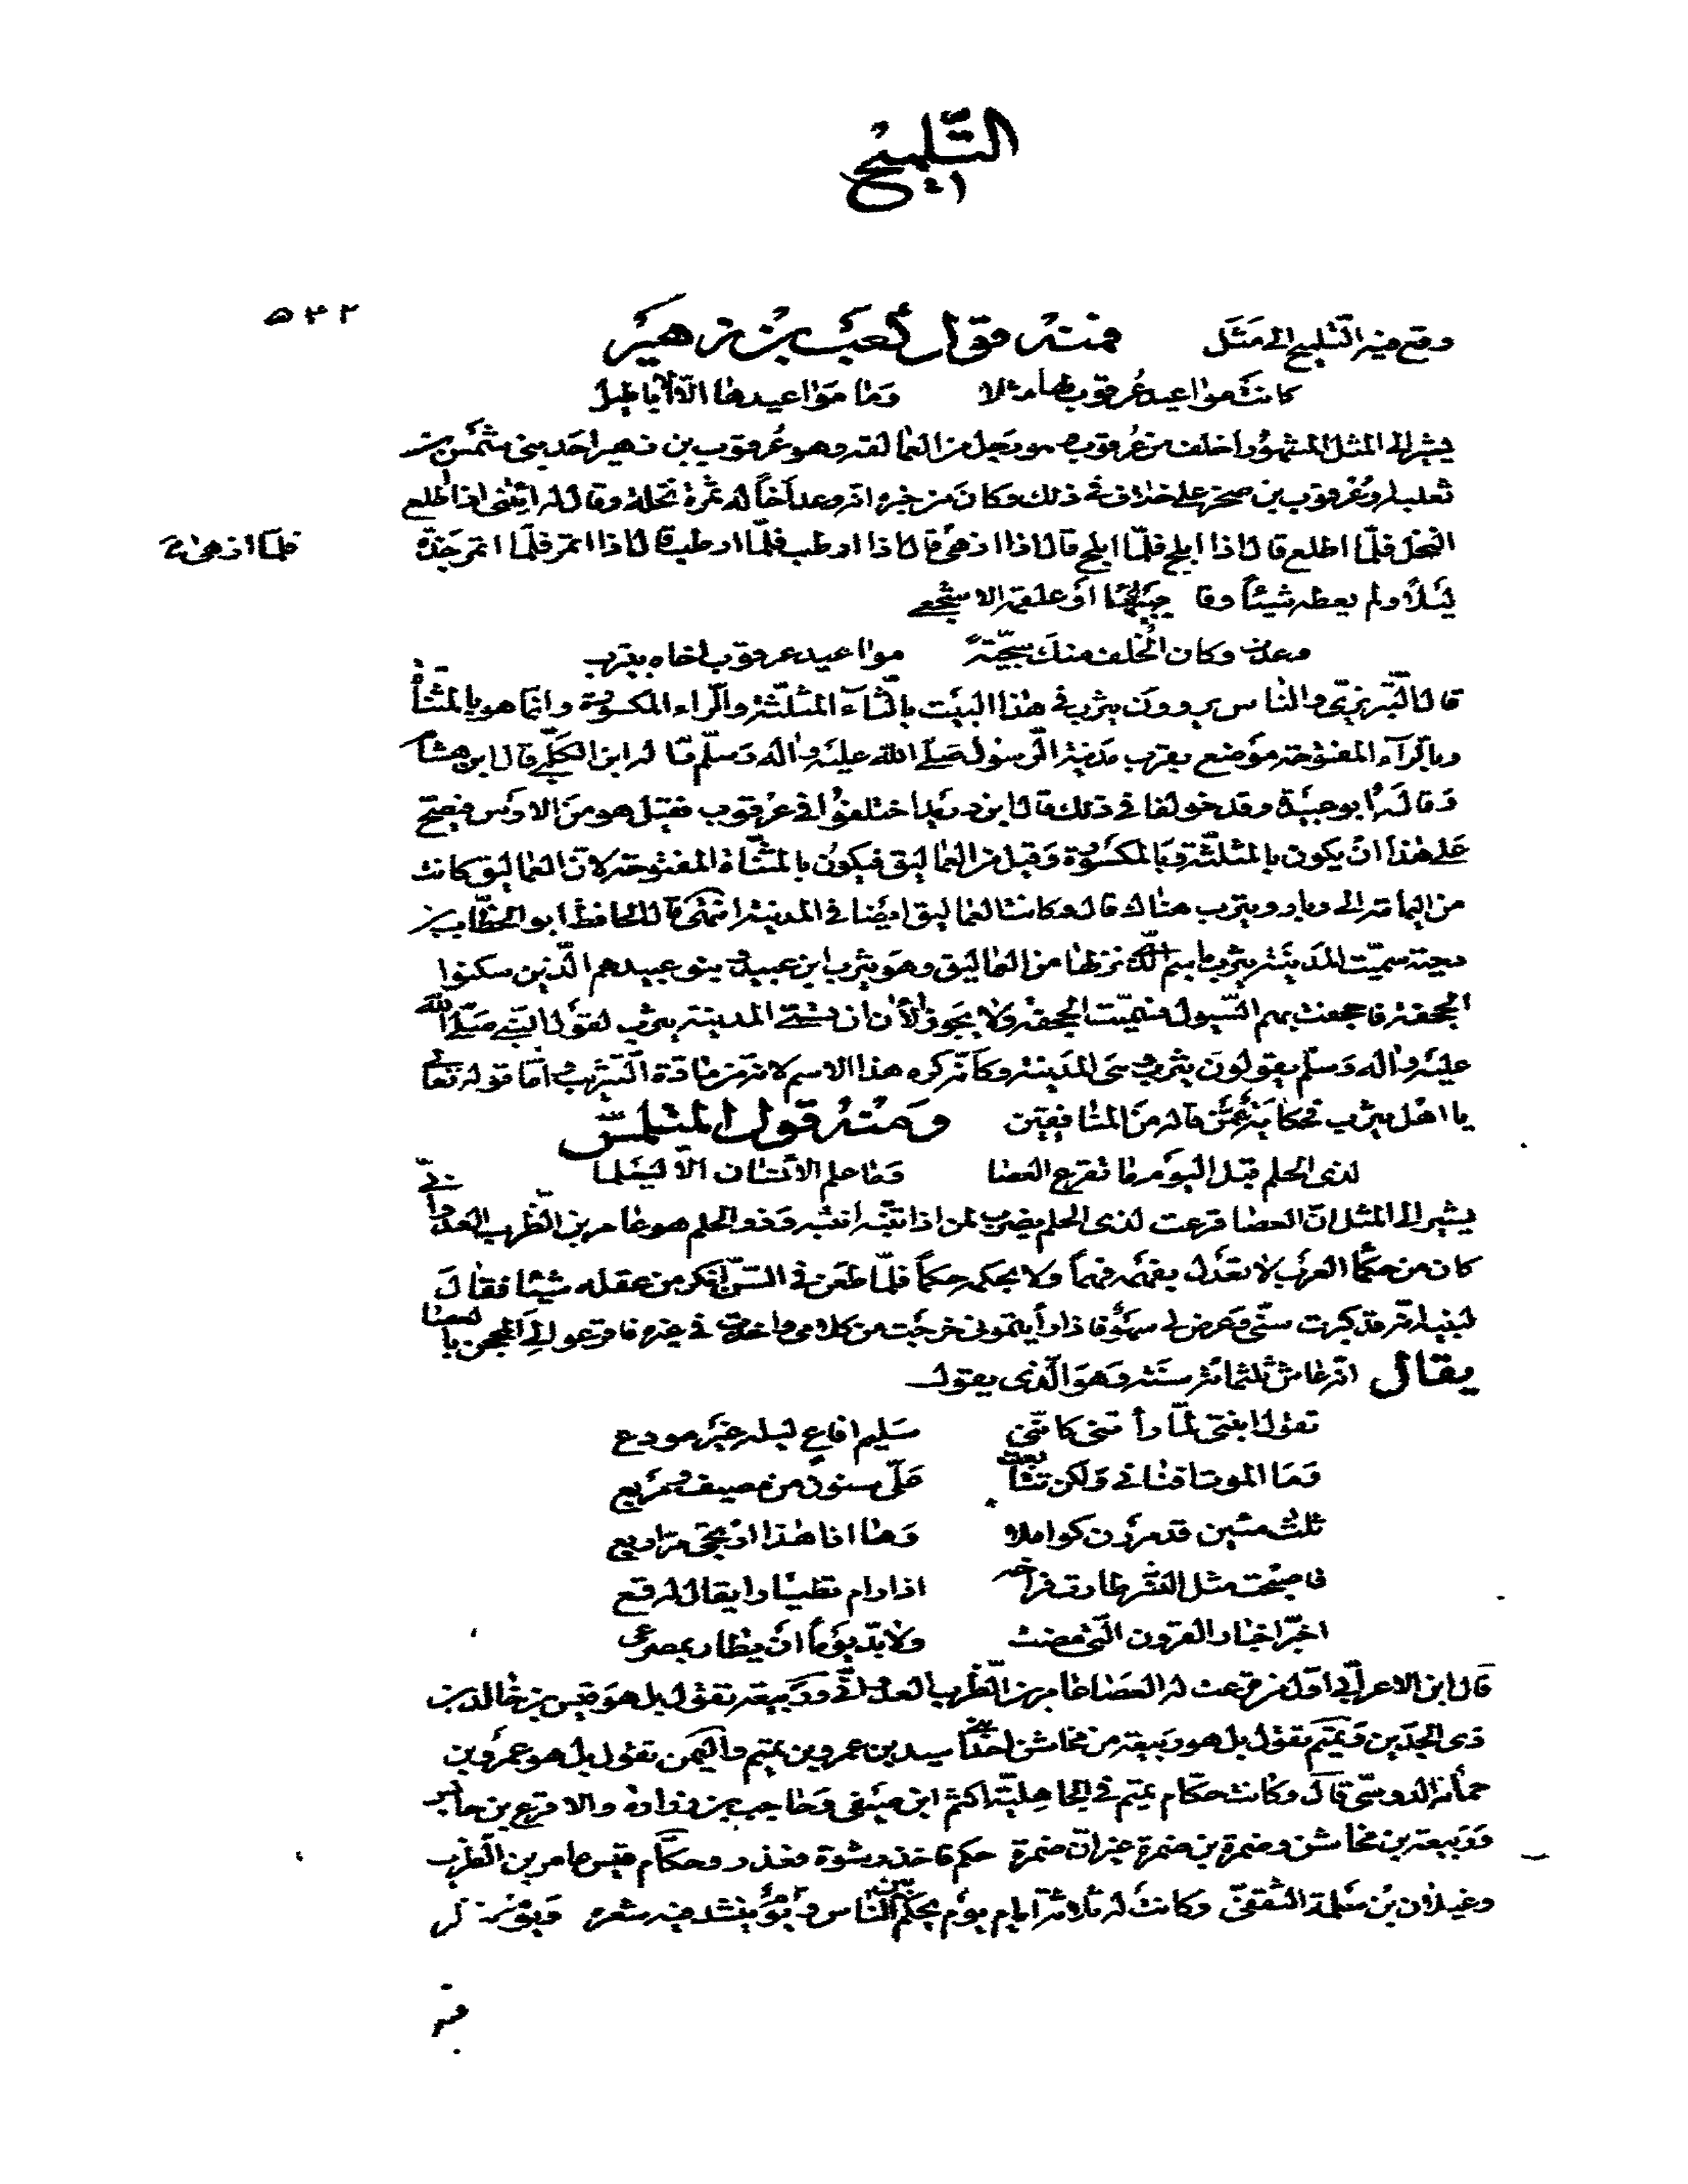 التلميح
٥٤٢
وقع فيه التلميح الى مَثَل فمنه قول كعب بن زهير
كانت مواعيد عُرقوب لها مثلا وَما مَوَاعيدها الّا الأباطيل
يشير الى المثل المشهُور اخلف من عُرقوب هو رَجل من العمالقه وهو عُرقوب بن زهير احَد بنى شمس بن
ثعلبه او عُرقوب بن صخر على خلاف فى ذلك وكانَ من خبره انه وعد اخاً له ثمرة نخلة وقال له ائتنى اذا اطلع
النخل فلمّا اطلع قال اذا ابلح فلمّا ابلح قال اذا ازهىٰ قال اذا ارطب فلمّا ارطب قال اذا اتمر فلمّا اتمر جَذّه
فلمّا ازهىٰ
لَيْلاً ولم يعطه شيئاً وقا علقمة الاشجعى
وعدت وكان الخُلف منكَ سجيّةً مواعيد عرقوب اخاه بيترب
قال التّبريزىّ والناس يروون يثرب فى هذا البَيت بالثآء المثلّثة والرّاء المكسورة وانما هو بالمثنّاة
وبالرآء المفتوحة موضع بقرب مَدينة الرّسول صَلّى الله عليه واله وَسلّم قا له ابن الكلبّى قال ابن هشام
وَقاله ابو عبيدة وقد خولفا فى ذلك قال ابن دريد اختلفوُا فى عرقوب فقيل هو من الاوس فيصح
عَلى هذا انْ يكون بالمثلثة وَبالمكسورة وَقيل من العماليق فيكون بالمثنّاة المفتوحة لانّ العماليق كانت
من اليمامة الى وبار ويترب هناك قال وكانت العماليق ايضا فى المدينة انتهىٰ قال الحافظ ابو الخطّاب بن
دحية سمّيت المَدينة يثرب باسم الّذى نزلها من العماليق وهو يثرب ابن عبيد وبنو عبيد هم الّذين سكنوا
الجحفة فاجحفت بهم السّيول فسمّيت الجحفة ولا يجوز الآن ان تسمّى المدينة يثرب لقول النّبى صَلّى الله
عليه واله وَسلّم يقولون يثرب وهى المَدينة وكأنّه كره هذا الاسم لانه من مادّة التّثريب امّا قوله تعالى
يا اهل يثرب فحكاية عمّن قاله من المنافقين وَمنه قول المتلمّس
لذى الحلم قبل اليوم ما تقرع العصا وَما علم الانسان الّا ليعلما
يشير الى المثل انّ العصا قرعت لذى الحلم يضرب لمن اذا نبّه انتبه وذو الحلم هو عامر بن الظّرب العدوانىّ
كان من حكمآ العرب لا تعدل بفهمه فهماً ولا بحكمه حكماً فلمّا طعن فى السّنّ انكر من عقله شيئا فقالَ
لبنيه انّه قد كبرت سنّى وعرض لى سهو فاذا رأيتمونى خرجت من كلامى واخذت فى غيره فاقرعوا لى المجن بالعصا
يقال انه عاش ثلثمائة سنَة وَهوَ الّذى يقول
تقول ابنتى لمّا رأتنى كانّنى سَليم افاعٍ ليله غير مودع
وَمَا الموت افنانى وَلكن تتابعت عَلىّ سنون من مصيف ومربع
ثلث مئين قد مررن كواملا وَها انا هذا ارتجى مرّ اربع
فاصبحت مثل النسر طارت فراخه اذا رام تطيارا يقال له قع
اخبّر اخبار القرون الّتى مضت ولا بدّ يوماً ان يطار بمصرعى
قال ابن الاعرابىّ اوّل من قرعت له العصا عامر بن الظّرب العدوانىّ وربيعة تقول بل هو قيس بن خالد بن
ذى الجدّين وتميم تقول بل هو ربيعة من مخاشن احد بنى اسيد بن عمرو بن تميم واليمن تقول بل هو عمرو بن
حمامة الدوسىّ قال وكانت حكّام تميم فى الجاهليّة اكثم ابن صيفى وحاجب بن زرارة والاقرع بن حابس
وَربيعة بن مخاشن وضمرة بن ضمرة غير انّ ضمرة حكم فاخذ رشوة فغدر وحكّام قيس عامر بن الظّرب
وغيلان بن سَلمة الثقفىّ وكانت له ثلاثة ايام يوم يحكم بين النّاس ويوم ينشد فيه شعره وَيوم